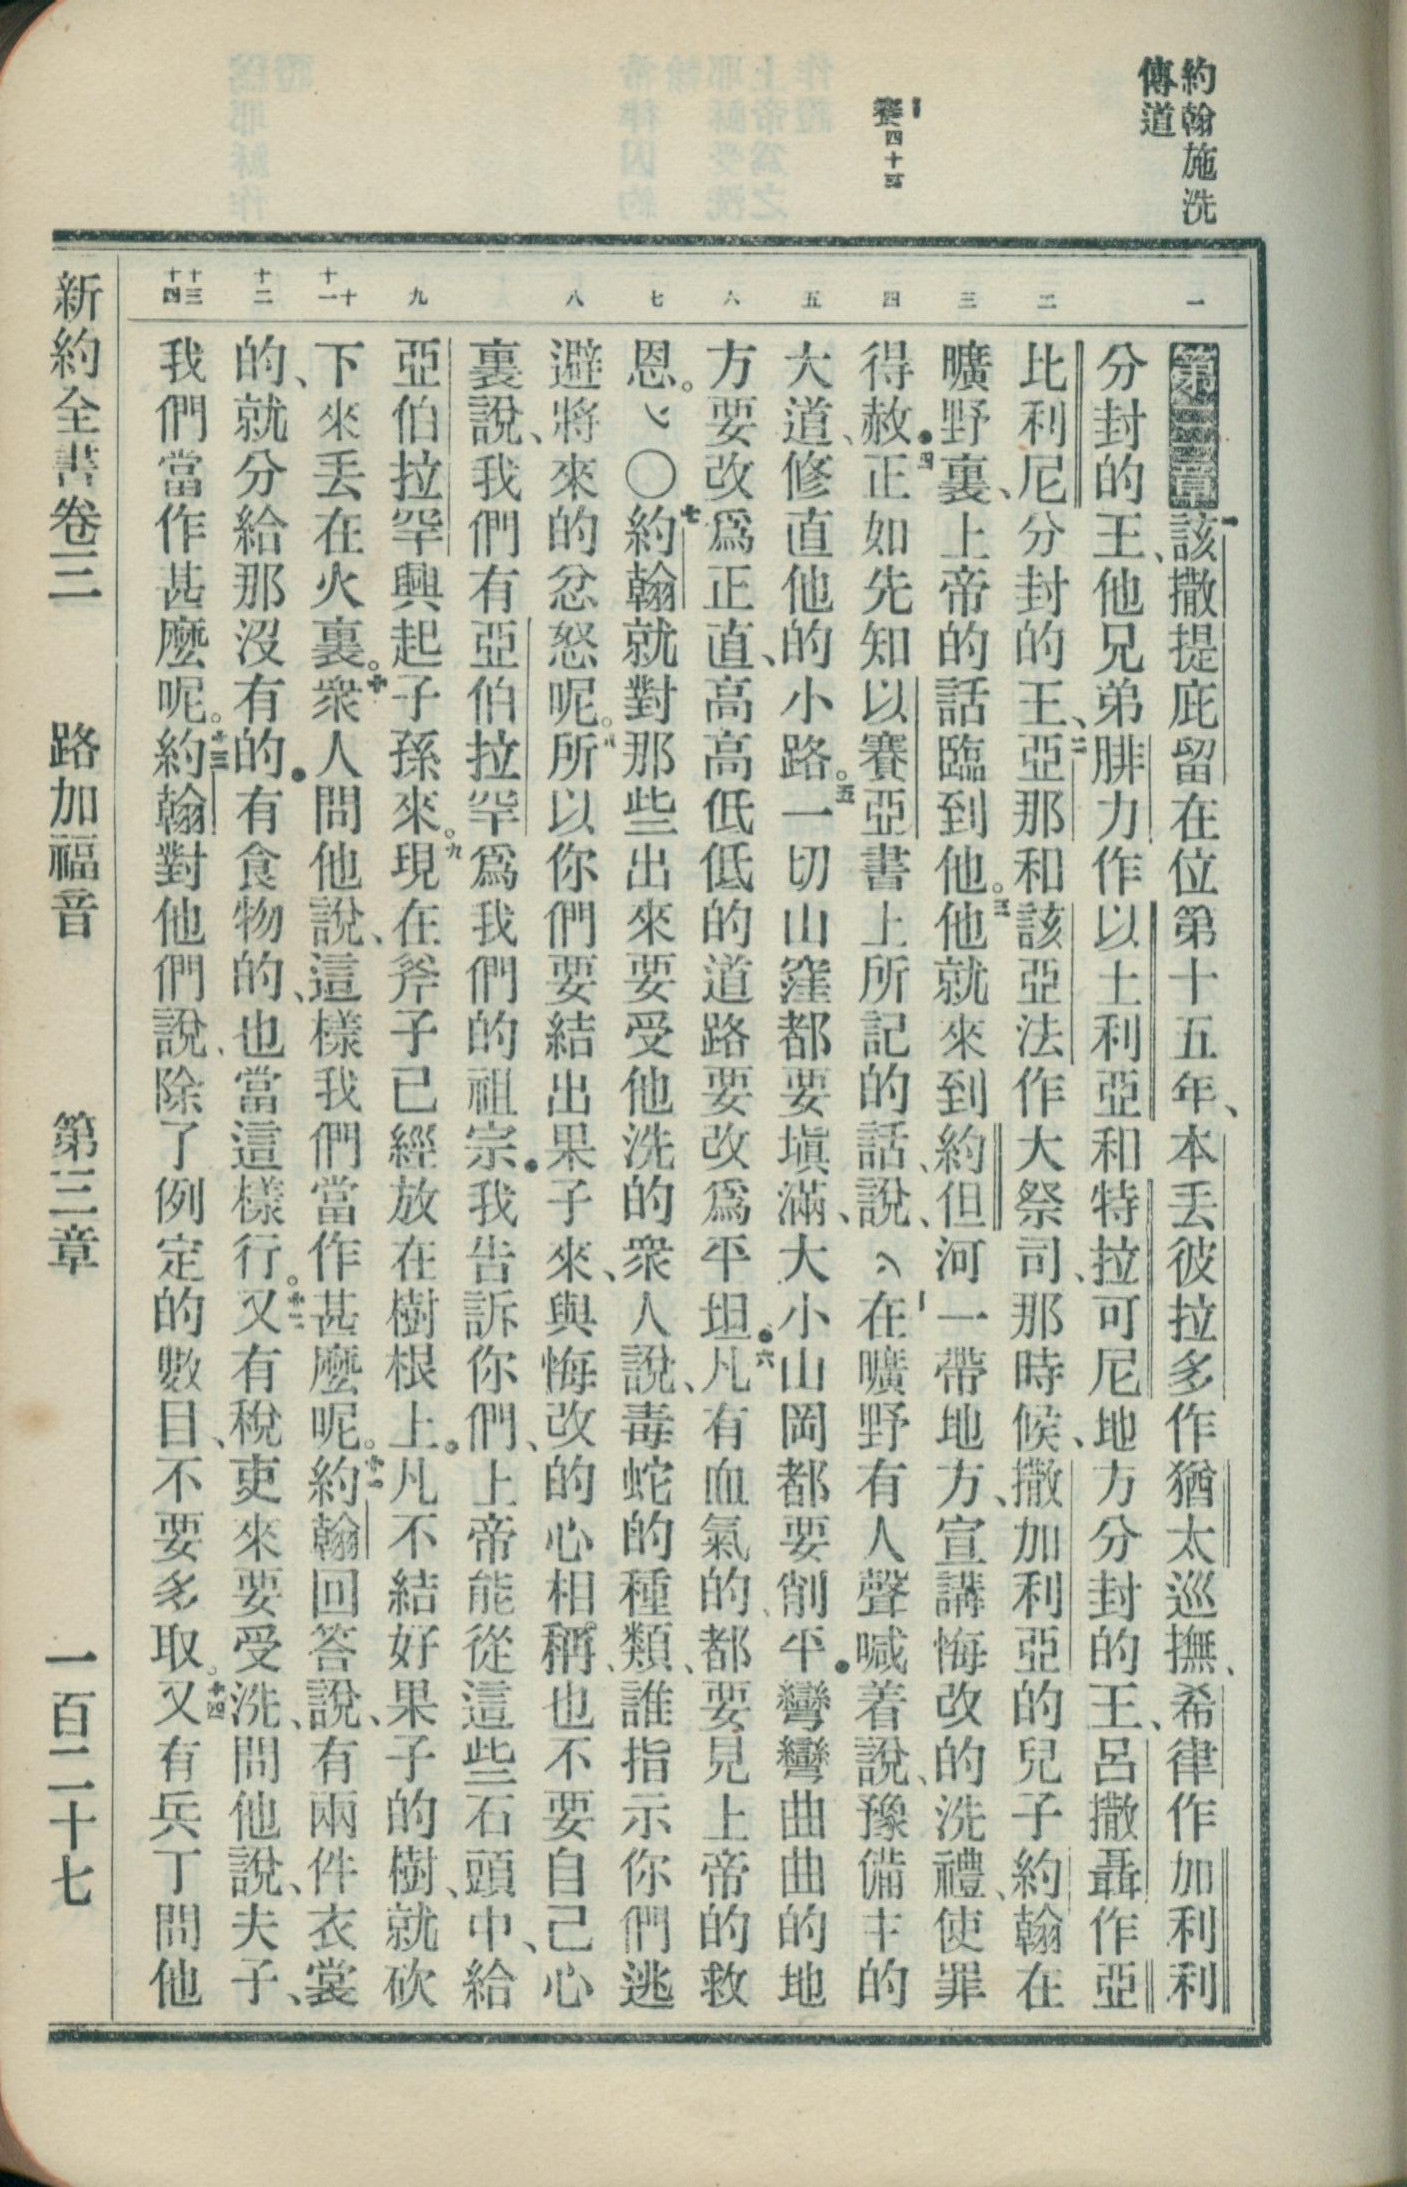 約翰施洗
傳道
賽四十
一
二
三
四
五
六
七
八
九
十
十一
十二
十三
十四
第三章一該撒提庇留在位第十五年、本丟彼拉多作猶太巡撫、希律作加利利
分封的王、他兄弟腓力作以土利亞和特拉可尼地方分封的王、呂撒聶作亞
比利尼分封的王、二亞那和該亞法作大祭司、那時候、撒加利亞的兒子約翰在
曠野裏、上帝的話臨到他。三他就來到約但河一帶地方、宣講悔改的洗禮、使罪
得赦．四正如先知以賽亞書上所記的話、說、在曠野有人聲喊着說、豫備主的
大道、修直他的小路。五一切山窪都要塡滿、大小山岡都要削平．彎彎曲曲的地
方要改爲正直、高高低低的道路要改爲平坦．六凡有血氣的、都要見上帝的救
恩。〇七約翰就對那些出來要受他洗的衆人說、毒蛇的種類、誰指示你們逃
避將來的忿怒呢。八所以你們要結出果子來、與悔改的心相稱、也不要自己心
裏說、我們有亞伯拉罕爲我們的祖宗．我告訴你們、上帝能從這些石頭中、給
亞伯拉罕興起子孫來。九現在斧子已經放在樹根上．凡不結好果子的樹、就砍
下來丟在火裏。十衆人問他說、這樣我們當作甚麼呢。十一約翰回答說、有兩件衣裳
的、就分給那沒有的．有食物的、也當這樣行。十二又有稅吏來要受洗、問他說、夫子、
我們當作甚麼呢。十三約翰對他們說、除了例定的數目、不要多取。十四又有兵丁問他
新約全書卷三 路加福音 第三章 一百二十七